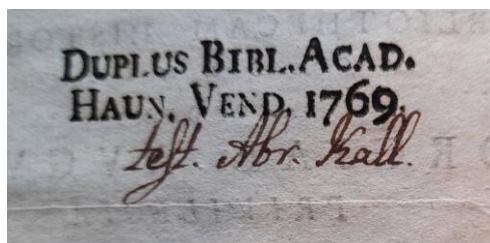 DUPLUS BIBL. ACAD.
HAUN. VEND. 1769.
test. Abr. Kall.